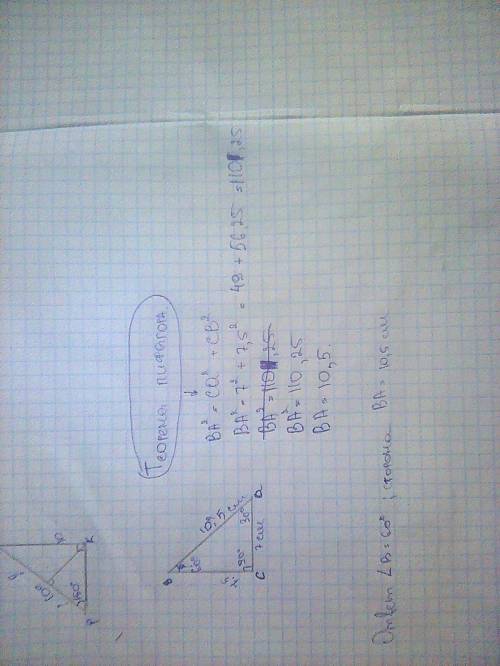 Теорема пифагора.
BA² = CA² + CB²
BA² = 7² + 7,5² = 49 + 56,25 = 110,25
BA² = 110,25
BA² = 110,25
BA = 10,5.
B
60°
90°
C
7 см
30°
a
10,5 см
P
K
60°
Ответ ∠B = 60°, сторона BA = 10,5 см